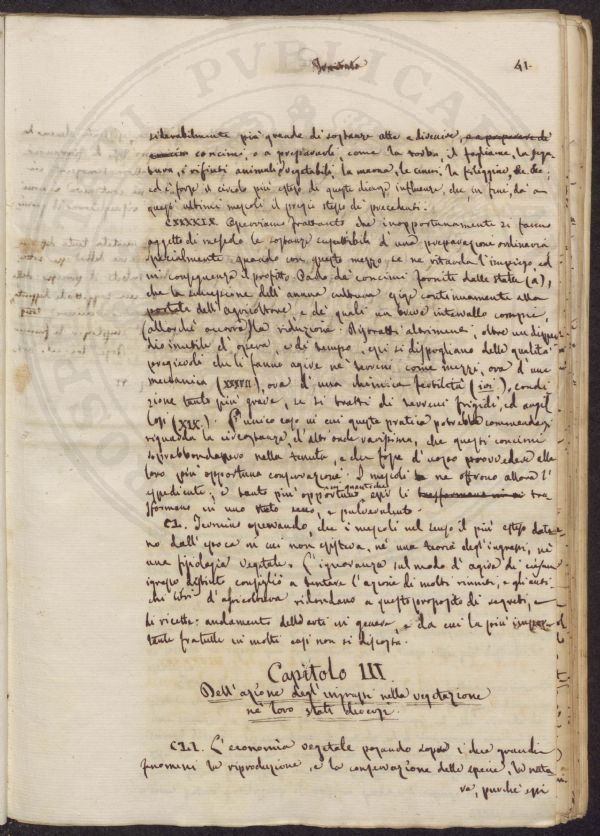 41.
siderabilmente più grande di sostanze atte a divenire,
concimi, o a prepararli, come la torba, il fogliame, la sega
tura, i rifiuti animali, e vegetabili, la marna, le ceneri, la filiggine, &c &c;
ed ei forse il circolo più esteso di queste diuage influenze, che, in fine, dà a
questi ultimi mescoli il pregio stesso de' precedenti.
CXXXXIX. Osserviamo frattanto che inopportunamente si fanno
oggetto di mescolo le sostanze capitibili d'una preparazione ordinaria
specialmente quando con questo mezzo, se ne ritarda l'impiego, ed
in conseguenza il profitto. Parlo de' concimi forniti dalle stalle (a),
che la successione dell'annua cultura esige continuamente alla
dell'agricoltore, e de' quali un breve intervallo compie,
(allorchè occorre) la riduzione. Disposti altrimenti, oltre un dispen
dio inutile d'opera, e di tempo, essi si dispogliano delle qualità
pregievoli che li fanno agire ne' terreni come mezzi, ora d'una
mecanica (XXXVII), ora d'una chemica fertilità (101), condi
zione tanto più grave, se si tratti di terreni frigidi, ed argil
losi (XIX). L'unico caso in cui questa pratica potrebbe commendarsi
riguarda la circostanza, d'altronde rarissima, che questi concimi
soprabbondassero nella tenuta, e che fosse d'uopo provvedere alla
loro più opportuna conservazione. I mescoli ne offrono allora l'
espediente; e tanto più opportuno, essi li tra
sformano in uno stato secco, e pulverulento.
CL. Termino osservando, che i mescoli nel senso il più esteso data
no dall'epoca in cui non esisteva, nè una teoria degl'ingrassi, nè
una fisiologia vegetale. L'ignoranza sul modo d'agire di ciascun
ingrasso distinto consigliò a tentare l'azione di molti riuniti, e gli anti
chi libri d'agricoltura ridondano a questo proposito di segreti, e
di ricette: andamento dell'arti in genere, e da cui la più
tante fratelli in molti casi non si discosta.
Capitolo III
Dell'azione degl'ingrassi nella vegetazione
ne' loro stati diversi.
CLI. L'economia vegetale posando sopra i due grandi
fenomeni la riproduzione, e la conservazione delle specie, la natu
ra, purchè essi